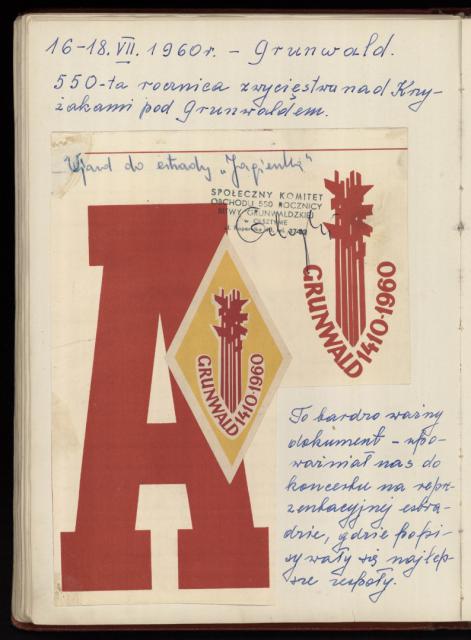 16-18.VII.1960r. – Grunwald.
550-ta rocznica zwycięstwa nad Krzy-
żakami pod Grunwaldem.
Wjazd do estrady „Jagienka”
SPOŁECZNY KOMITET
OBCHODU 550 ROCZNICY
BITWY GRUNWALDZKIEJ
w OLSZTYNIE
A
GRUNWALD 1410-1960
GRUNWALD 1410-1960
To bardzo ważny
dokument – upo-
ważniał nas do
koncertu na repre-
zentacyjnej estra-
dzie, gdzie popi-
sywały się najlep-
sze zespoły.